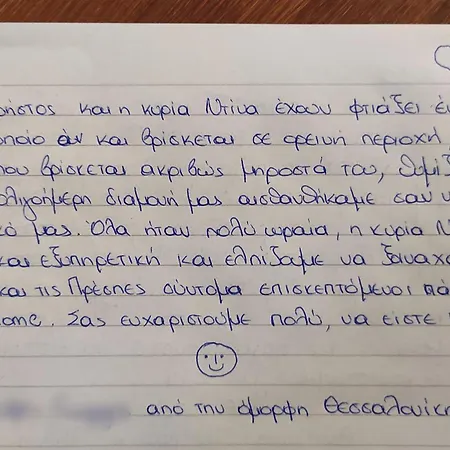 ρήστος και η κυρία Ντίνα έχουν φτιάξει έν
ποίο άν και βρίσκεται σε ορεινή περιοχή
που βρίσκεται ακριβώς μπροστά του, θυμίζ
ολιγοήμερη διαμονή μας αισθανθήκαμε σαν ν
κό μας. Όλα ήταν πολύ ωραία, η κυρία Ν
και εξυπηρετική και ελπίζαμε να ξαναχ
και τις Πρέσπες σύντομα επισκεπτόμενοι πά
ome. Σας ευχαριστούμε πολύ, να είστε
από την όμορφη Θεσσαλονίκη